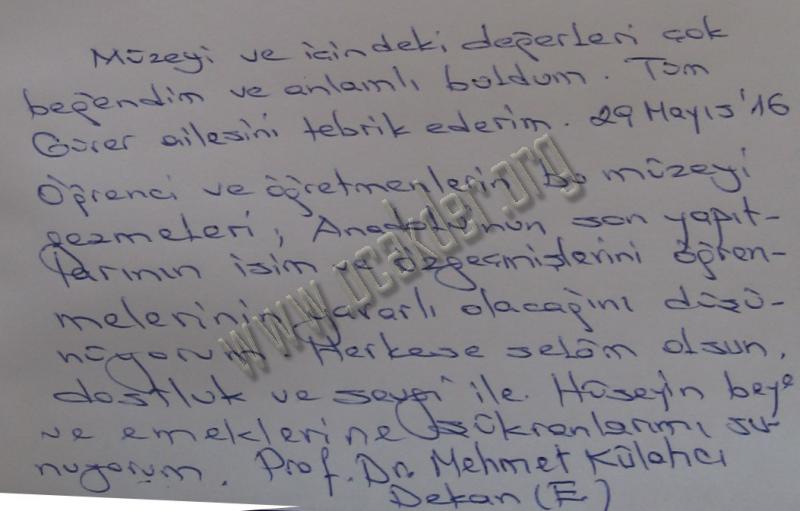 Müzeyi ve içindeki değerleri çok
beğendim ve anlamlı buldum. Tüm
Gürer ailesini tebrik ederim. 29 Mayıs'16
Öğrenci ve öğretmenlerin bu müzeyi
gezmeleri, Anadolu'nun son yapıt-
larının isim ve özgeçmişlerini öğren-
melerinin yararlı olacağını düşü-
nüyorum. Herkese selâm olsun,
dostluk ve sevgi ile. Hüseyin beye
ve emeklerine şükranlarımı su-
nuyorum. Prof. Dr. Mehmet Külahcı
Dekan (E)
www.ocakder.org